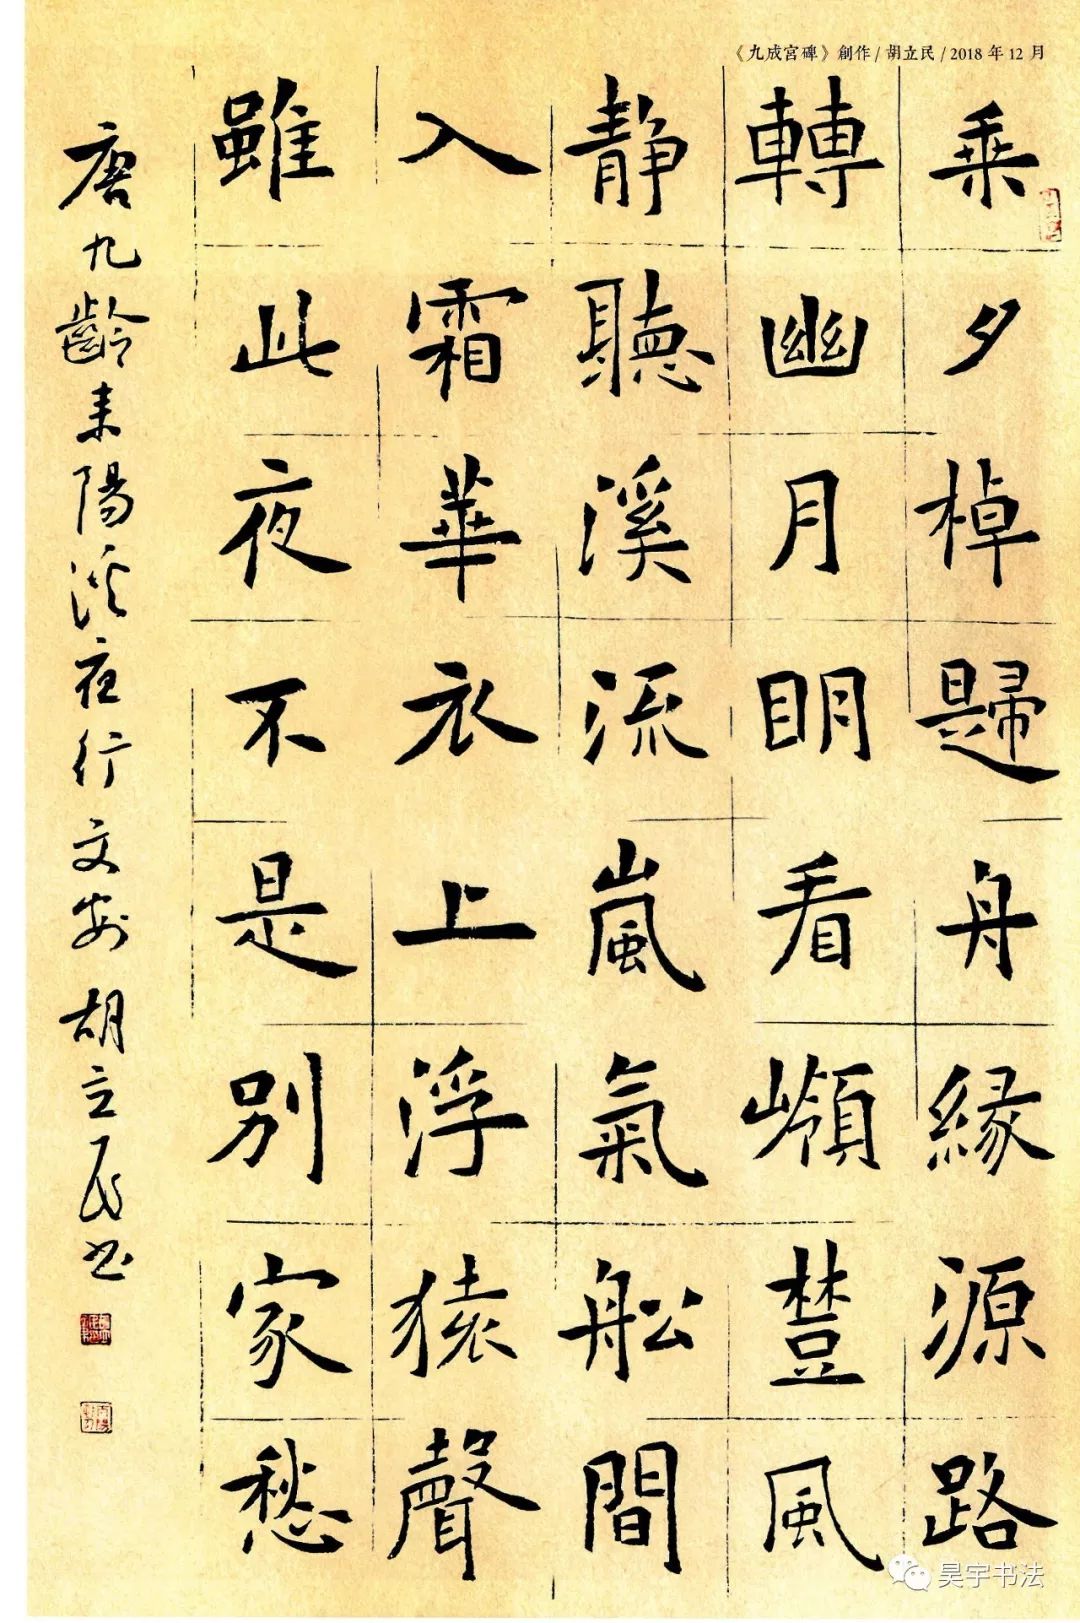 《九成宮碑》創作/胡立民/2018年12月
乘夕棹歸舟緣源路
轉幽月眀看嶺樹風
靜聽溪流嵐氣舩間
入霜華衣上浮猿聲
雖此夜不是別家愁
唐九齡耒陽溪夜行 文 胡立民书
昊宇书法